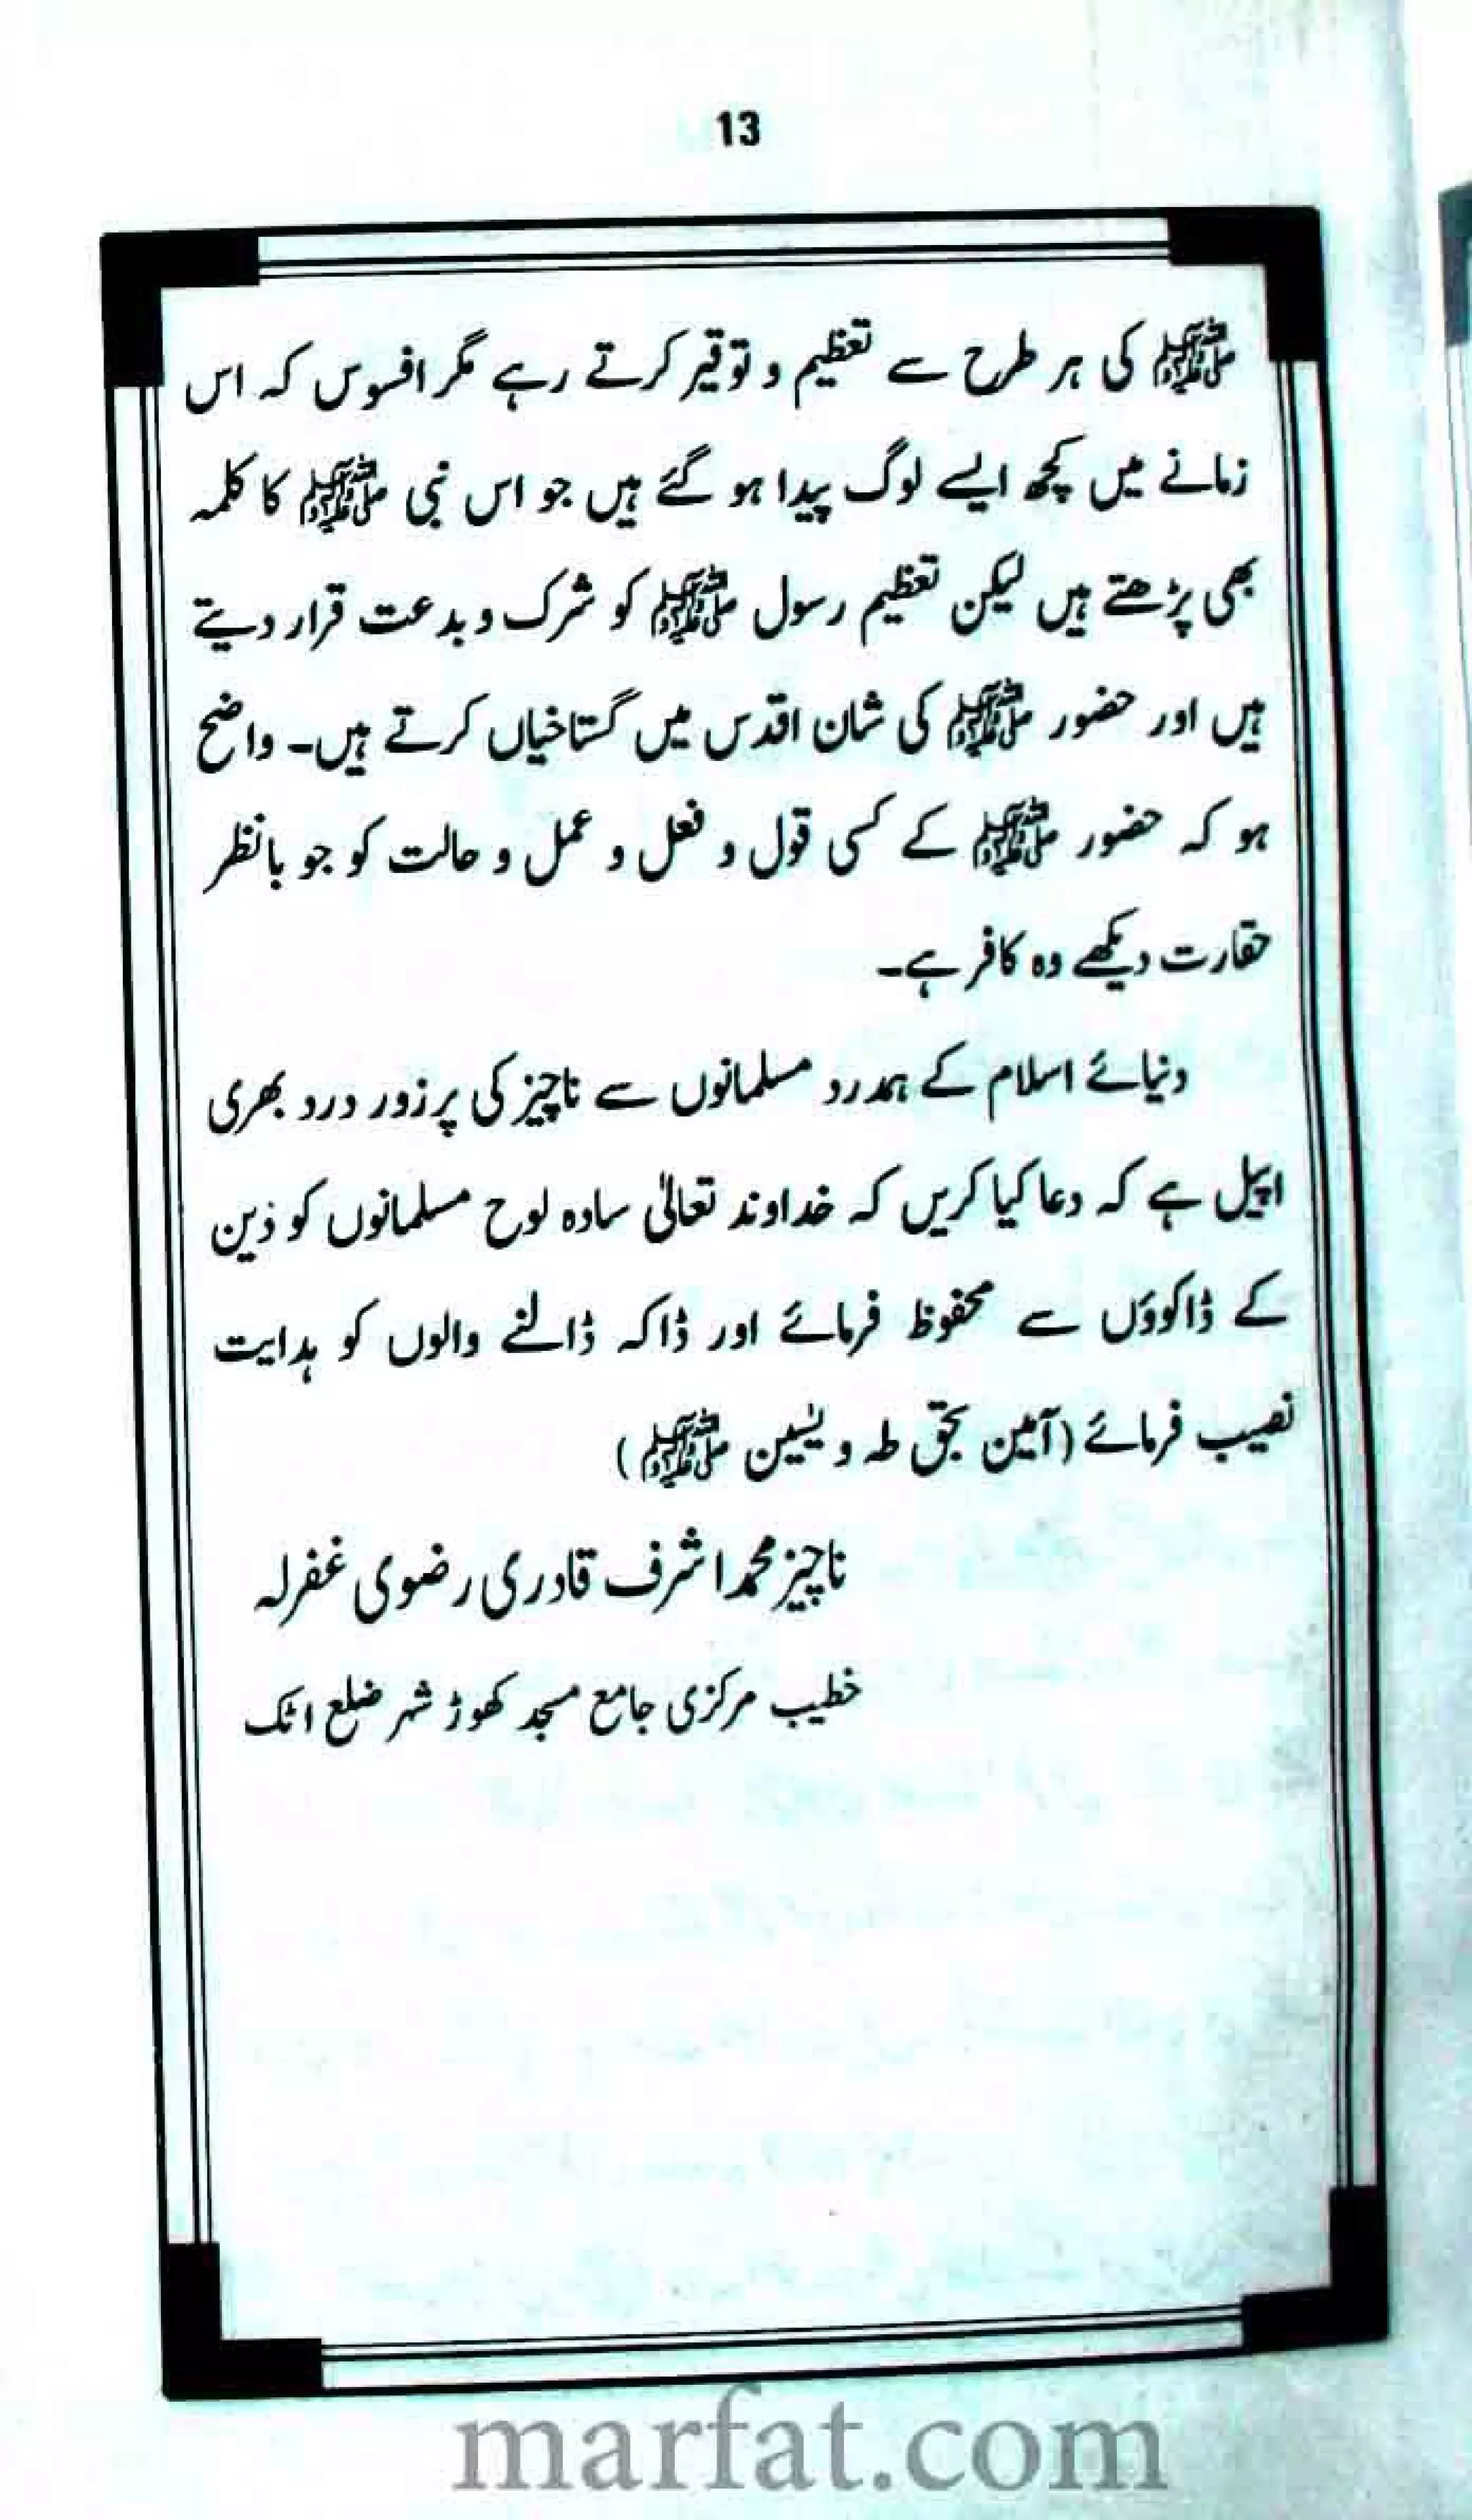 13
ﷺ کی ہر طرح سے تعظیم و توقیر کرتے رہے مگر افسوس کہ اس
زمانے میں کچھ ایسے لوگ پیدا ہو گئے ہیں جو اس نبی ﷺ کا کلمہ
بھی پڑھتے ہیں لیکن تعظیم رسول ﷺ کو شرک و بدعت قرار دیتے
ہیں اور حضور ﷺ کی شان اقدس میں گستاخیاں کرتے ہیں۔ واضح
ہو کہ حضور ﷺ کے کسی قول و فعل و عمل و حالت کو جو بانظر
حقارت دیکھے وہ کافر ہے۔
دنیائے اسلام کے ہمدرد مسلمانوں سے ناچیز کی پر زور درد بھری
اپیل ہے کہ دعا کیا کریں کہ خداوند تعالٰی سادہ لوح مسلمانوں کو ذین
کے ڈاکوؤں سے محفوظ فرمائے اور ڈاکہ ڈالنے والوں کو ہدایت
نصیب فرمائے (آمین بحق طہ و یٰسین ﷺ)
ناچیز محمد اشرف قادری رضوی غفرلہ
خطیب مرکزی جامع مسجد کھوڑ شہر ضلع اٹک
marfat.com